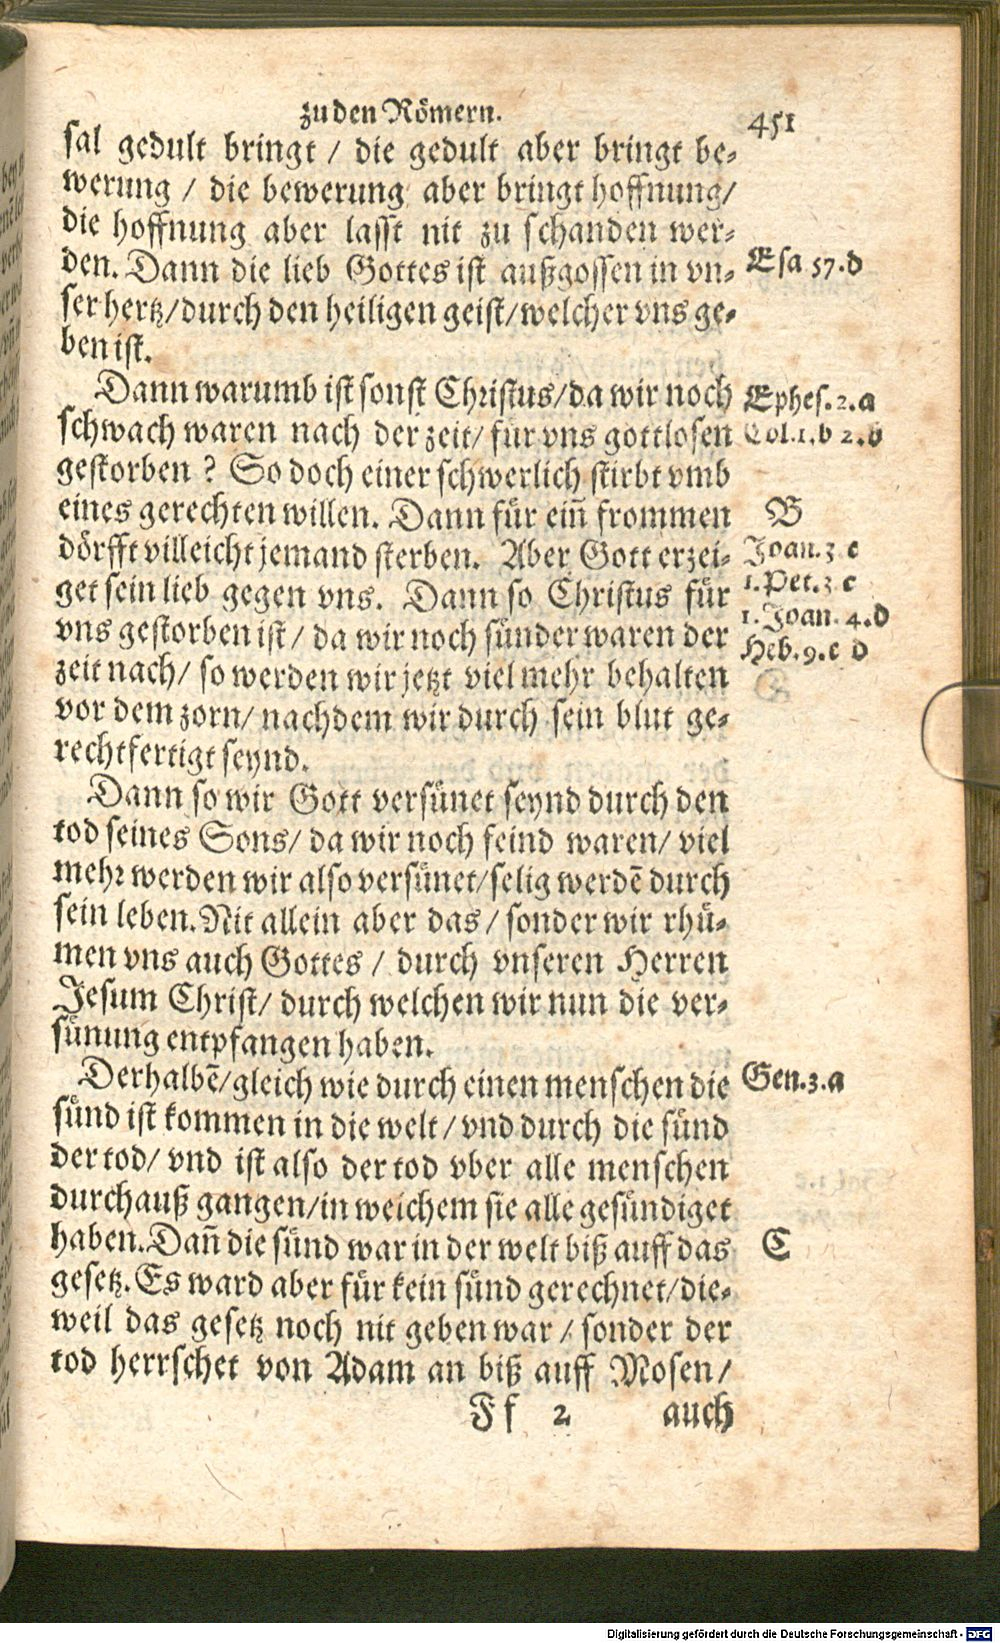 zu den Römern.
451
sal gedult bringt / die gedult aber bringt be-
werung / die bewerung aber bringt hoffnung/
die hoffnung aber lasst nit zu schanden wer-
den. Dann die lieb Gottes ist außgossen in vn-
Esa 57.d
ser hertz/durch den heiligen geist/welcher vns ge-
ben ist.
Dann warumb ist sonst Christus/da wir noch
Ephes. 2. a
schwach waren nach der zeit/ für vns gottlosen
Col. 1. b 2. b
gestorben ? So doch einer schwerlich stirbt vmb
eines gerechten willen. Dann für ein̄ frommen
B
dörfft villeicht jemand sterben. Aber Gott erzei-
Joan. 3 c
get sein lieb gegen vns. Dann so Christus für
1. Pet. 3 c
vns gestorben ist/ da wir noch sünder waren der
1. Joan. 4. d
zeit nach/ so werden wir jetzt viel mehr behalten
Heb. 9. c d
vor dem zorn/ nachdem wir durch sein blut ge-
rechtfertigt seynd.
Dann so wir Gott versünet seynd durch den
tod seines Sons/ da wir noch feind waren/ viel
mehr werden wir also versünet/selig werdē durch
sein leben. Nit allein aber das / sonder wir rhü-
men vns auch Gottes / durch vnseren Herren
Jesum Christ/ durch welchen wir nun die ver-
sünung entpfangen haben.
Derhalbē/gleich wie durch einen menschen die
Gen. 3. a
sünd ist kommen in die welt / vnd durch die sünd
der tod/ vnd ist also der tod vber alle menschen
durchauß gangen/in weichem sie alle gesündiget
haben. Dan̄ die sünd war in der welt biß auff das
C
gesetz. Es ward aber für kein sünd gerechnet/die-
weil das gesetz noch nit geben war / sonder der
tod herrschet von Adam an biß auff Mosen/
Ff 2 auch
Digitalisierung gefördert durch die Deutsche Forschungsgemeinschaft - DFG